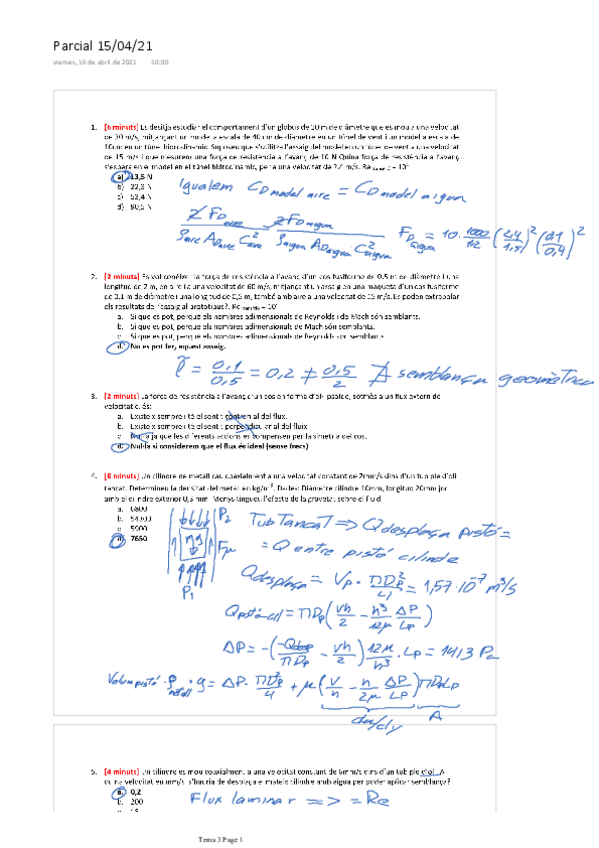 Parcial 15/04/21
viernes, 16 de abril de 2021 10:00
1. [6 minuts] Es desitja estudiar el comportament d'un globus de 10 m de diàmetre que es mou a una velocitat
de 30 m/s, mitjançant un model a escala de 40 cm de diàmetre en un túnel de vent i un model a escala de
10cm en un túnel hidrodinàmic. Suposeu que s'utilitza l'assaig del model en un túnel de vent a una velocitat
de 15 m/s i que mesurem una força de resistència a l'avanç de 10 N Quina força de resistència a l'avanç
s'espera en el model en el túnel hidrodinàmic, per a una velocitat de 2,4 m/s.
a) 13,5 N
b) 22,2 N
c) 52,4 N
d) 90,5 N
Igualem C_D model aire = C_D model aigua
2F_D aire / ρ_aire A_Daire C²_aire = 2F_D aigua / ρ_aigua A_Daigua C²_aigua
F_D aigua = 10 · 1000/1,2 (2,4/1,5)² (0,1/0,4)²
2. [2 minuts] Es vol conèixer la força de resistència a l'avanç d'un cos fusiforme de 0.5 m de diàmetre i una
longitud de 2 m, en aire i a una velocitat de 60 m/s, mitjançant un assaig en una maqueta d'un cos fusiforme
de 0.1 m de diàmetre i una longitud de 0,5 m, també amb aire a una velocitat de 15 m/s. Es poden extrapolar
els resultats de l'assaig al prototipus?
a. Si que es pot, perquè els nombres adimensionals de Reynolds i de Mach són semblants.
b. Si que es pot, perquè els nombres adimensionals de Mach són semblants.
c. Si que es pot, perquè els nombres adimensionals de Reynolds son semblants.
d. No es pot fer, aquest assaig.
= 0,1/0,5 = 0,2 ≠ 0,5/2 ∄ semblança geomètrica
3. [2 minuts] La força de resistència a l'avanç d'un cos en forma d'el·lipsoide, sotmès a un flux extern de
velocitat c, és:
a. Existeix sempre i té el sentit contrari al del flux.
b. Existeix sempre i té el sentit perpendicular al del flux
c. Nul·la ja que les diferents accions es compensen per la simetria del cos.
d. Nul·la si considerem que el flux és ideal (sense frecs)
4. [8 minuts] Un cilindre de metall cau coaxialment a una velocitat constant de 2mm/s dins d'un tub ple d'oli
tancat. Determineu la densitat del metall en kg/m³. Dades: Diàmetre cilindre 10mm, longitud 20mm joc
amb el cilindre exterior 0,5 mm. Menyspreu l'efecte de la gravetat sobre el fluid
a. 6800
b. 54300
c. 5900
d. 7650
P₂
Fμ
P₁
Tub Tancat => Q desplaça pistó =
= Q entre pistó cilindre
Q desplaça = V_P · πD_P²/4 = 1,57·10⁻⁷ m³/s
Q pistó-cil = πD_P (Vh/2 − h³/12μ ΔP/L_P)
ΔP = −(−Q desp/πD_P − Vh/2) 12μ/h³ · L_P = 1413 Pa
Volum pistó · ρ metall · g = ΔP · πD_P²/4 + μ (V/h − h/2μ ΔP/L_P) πD_P L_P
du/dy A
5. [4 minuts] Un cilindre es mou coaxialment a una velocitat constant de 6mm/s dins d'un tub ple d'oli. A
quina velocitat en mm/s s'hauria de desplaçar el mateix cilindre amb aigua per poder aplicar semblança?
a. 0,2
b. 200
Flux laminar => = Re
Tema 3 Page 1